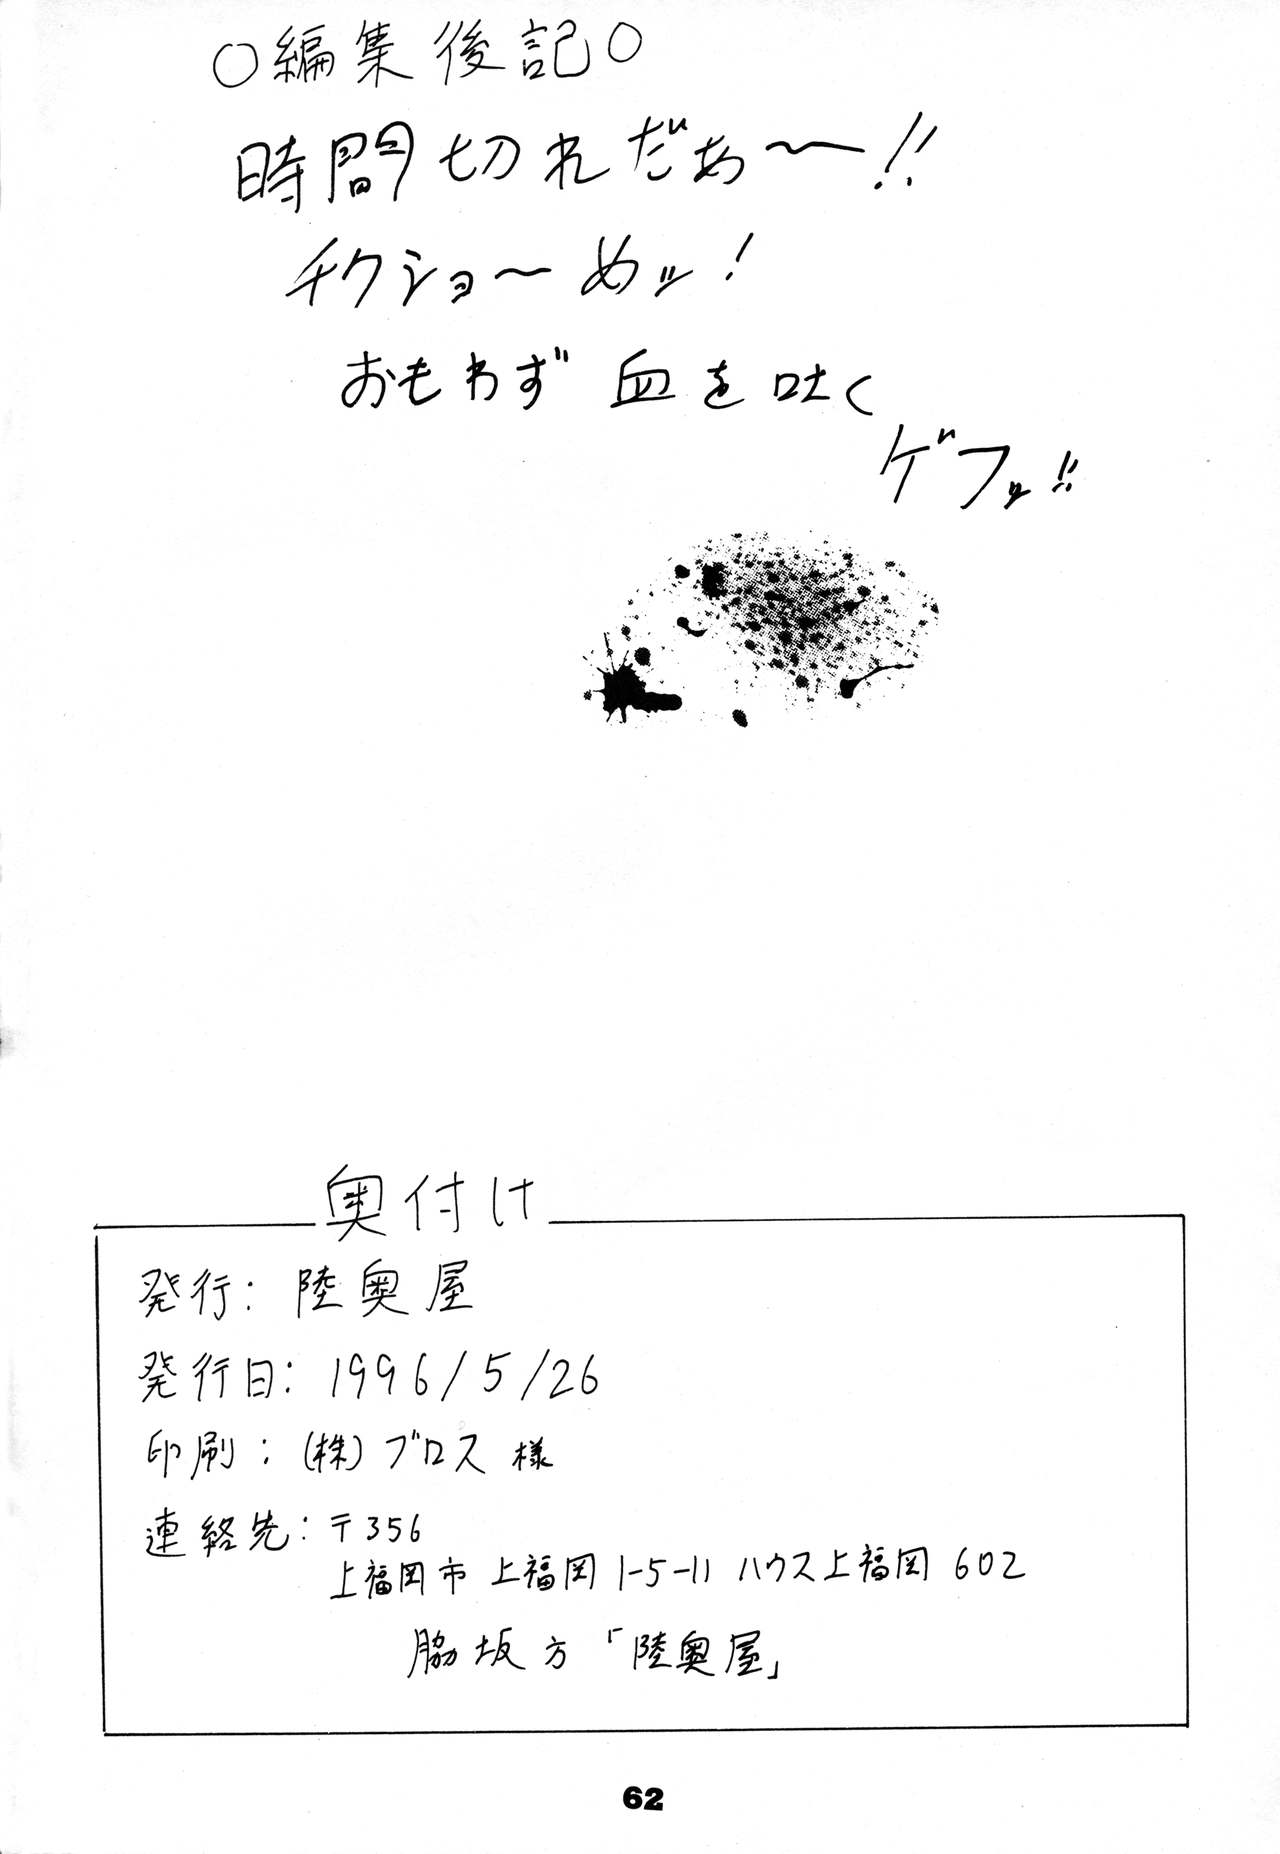 ○編集後記○
時間切れだぁ〜!!
チクショ〜めッ!
おもわず 血を吐く
ゲフッ!!
奥付け
発行: 陸奥屋
発行日: 1996/5/26
印刷: (株)ブロス 様
連絡先: 〒356
上福岡市 上福岡 1-5-11 ハウス上福岡 602
脇坂方「陸奥屋」
62